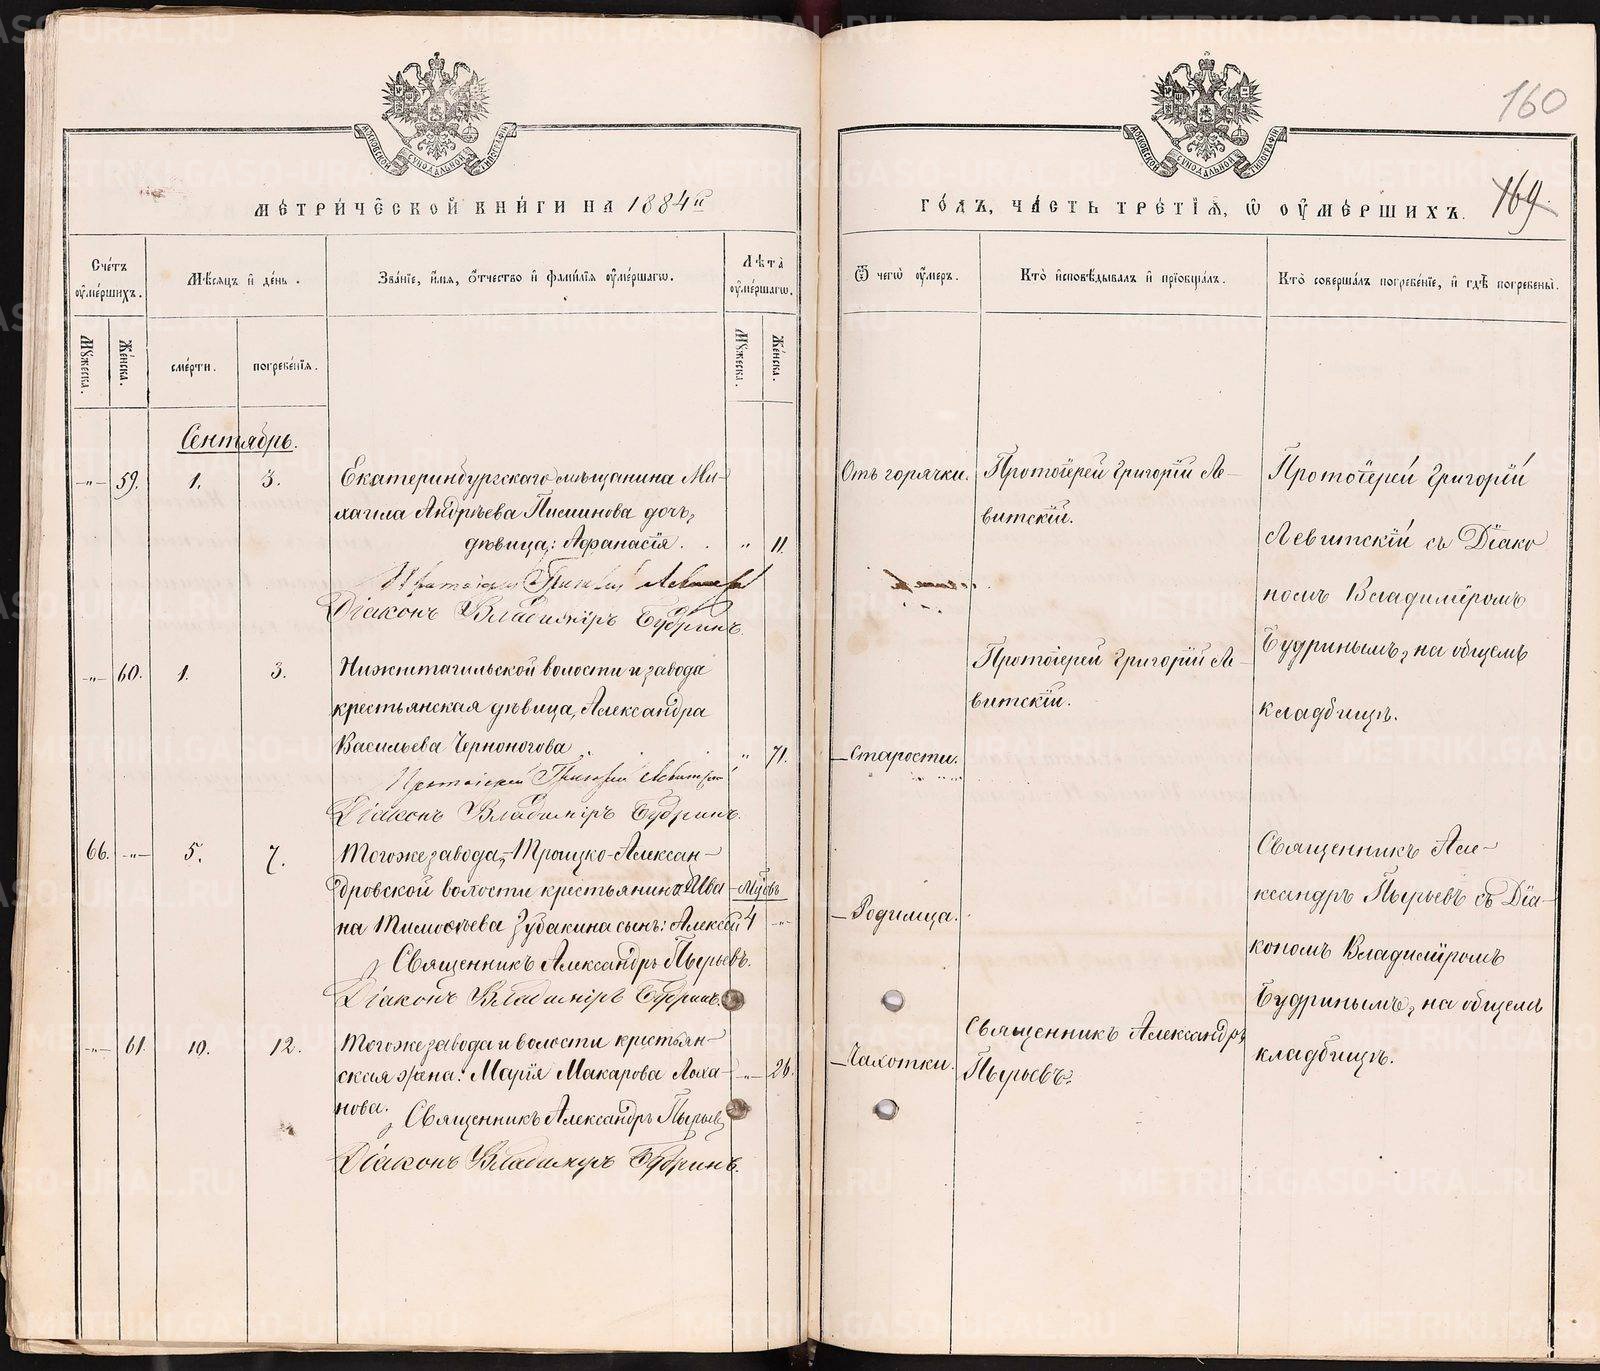 160
169.
МОСКОВСКОЙ СѴНОДАЛЬНОЙ ТИПОГРАФІИ
МОСКОВСКОЙ СѴНОДАЛЬНОЙ ТИПОГРАФІИ
МЕТРИЧЕСКОЙ КНИГИ НА 1884й
ГОДЪ, ЧАСТЬ ТРЕТІЯ, Ѡ ОУМЕРШИХЪ.
Счетъ оумершихъ.
Мѣсяцъ и день.
Званіе, имя, отчество и фамилія оумершагѡ.
Лѣта оумершагѡ.
Ѿ чегѡ оумеръ.
Кто исповѣдывалъ и пріобщалъ.
Кто совершалъ погребеніе, и гдѣ погребены.
Мужеска.
Женска.
смерти.
погребенія.
Мужеска.
Женска.
Сентябрь.
-"- 59. 1. 3.
Екатеринбургскаго мѣщанина Ми-
хаила Андрѣева Писминова дочь,
дѣвица: Афанасія . . " 11.
Протоіерей Григорій Левитскій
Діаконъ Владиміръ Будринъ.
Отъ горячки.
Протоіерей Григорій Ле-
витскій.
Протоіерей Григорій
Левитскій съ Діако
номъ Владиміромъ
Будринымъ, на общемъ
кладбищѣ.
-"- 60. 1. 3.
Нижнтагильской волости и завода
крестьянская дѣвица, Александра
Васильева Черноногова . . . " 71.
Протоіерей Григорій Левитскій
Діаконъ Владиміръ Будринъ.
— Старости.
Протоіерей Григорій Ле-
витскій.
66. -"- 5. 7.
Тогоже завода, Троицко-Алексан-
дровской волости крестьянина Ива-
на Тимоѳѣева Зубакина сынъ: Алексѣй
Мѣсвъ
4 -"-
Священникъ Александръ Пырьевъ.
Діаконъ Владиміръ Будринъ.
— Родимца.
Священникъ Але-
ксандръ Пырьевъ съ Діа-
кономъ Владиміромъ
Будринымъ, на общемъ
кладбищѣ.
-"- 61. 10. 12.
Тогоже завода и волости крестьян-
ская жена: Марія Макарова Лоха-
нова.
-"- 26.
Священникъ Александръ Пырьевъ
Діаконъ Владиміръ Будринъ.
— Чахотки.
Священникъ Александръ
Пырьевъ.
METRIKI.GASO-URAL.RU